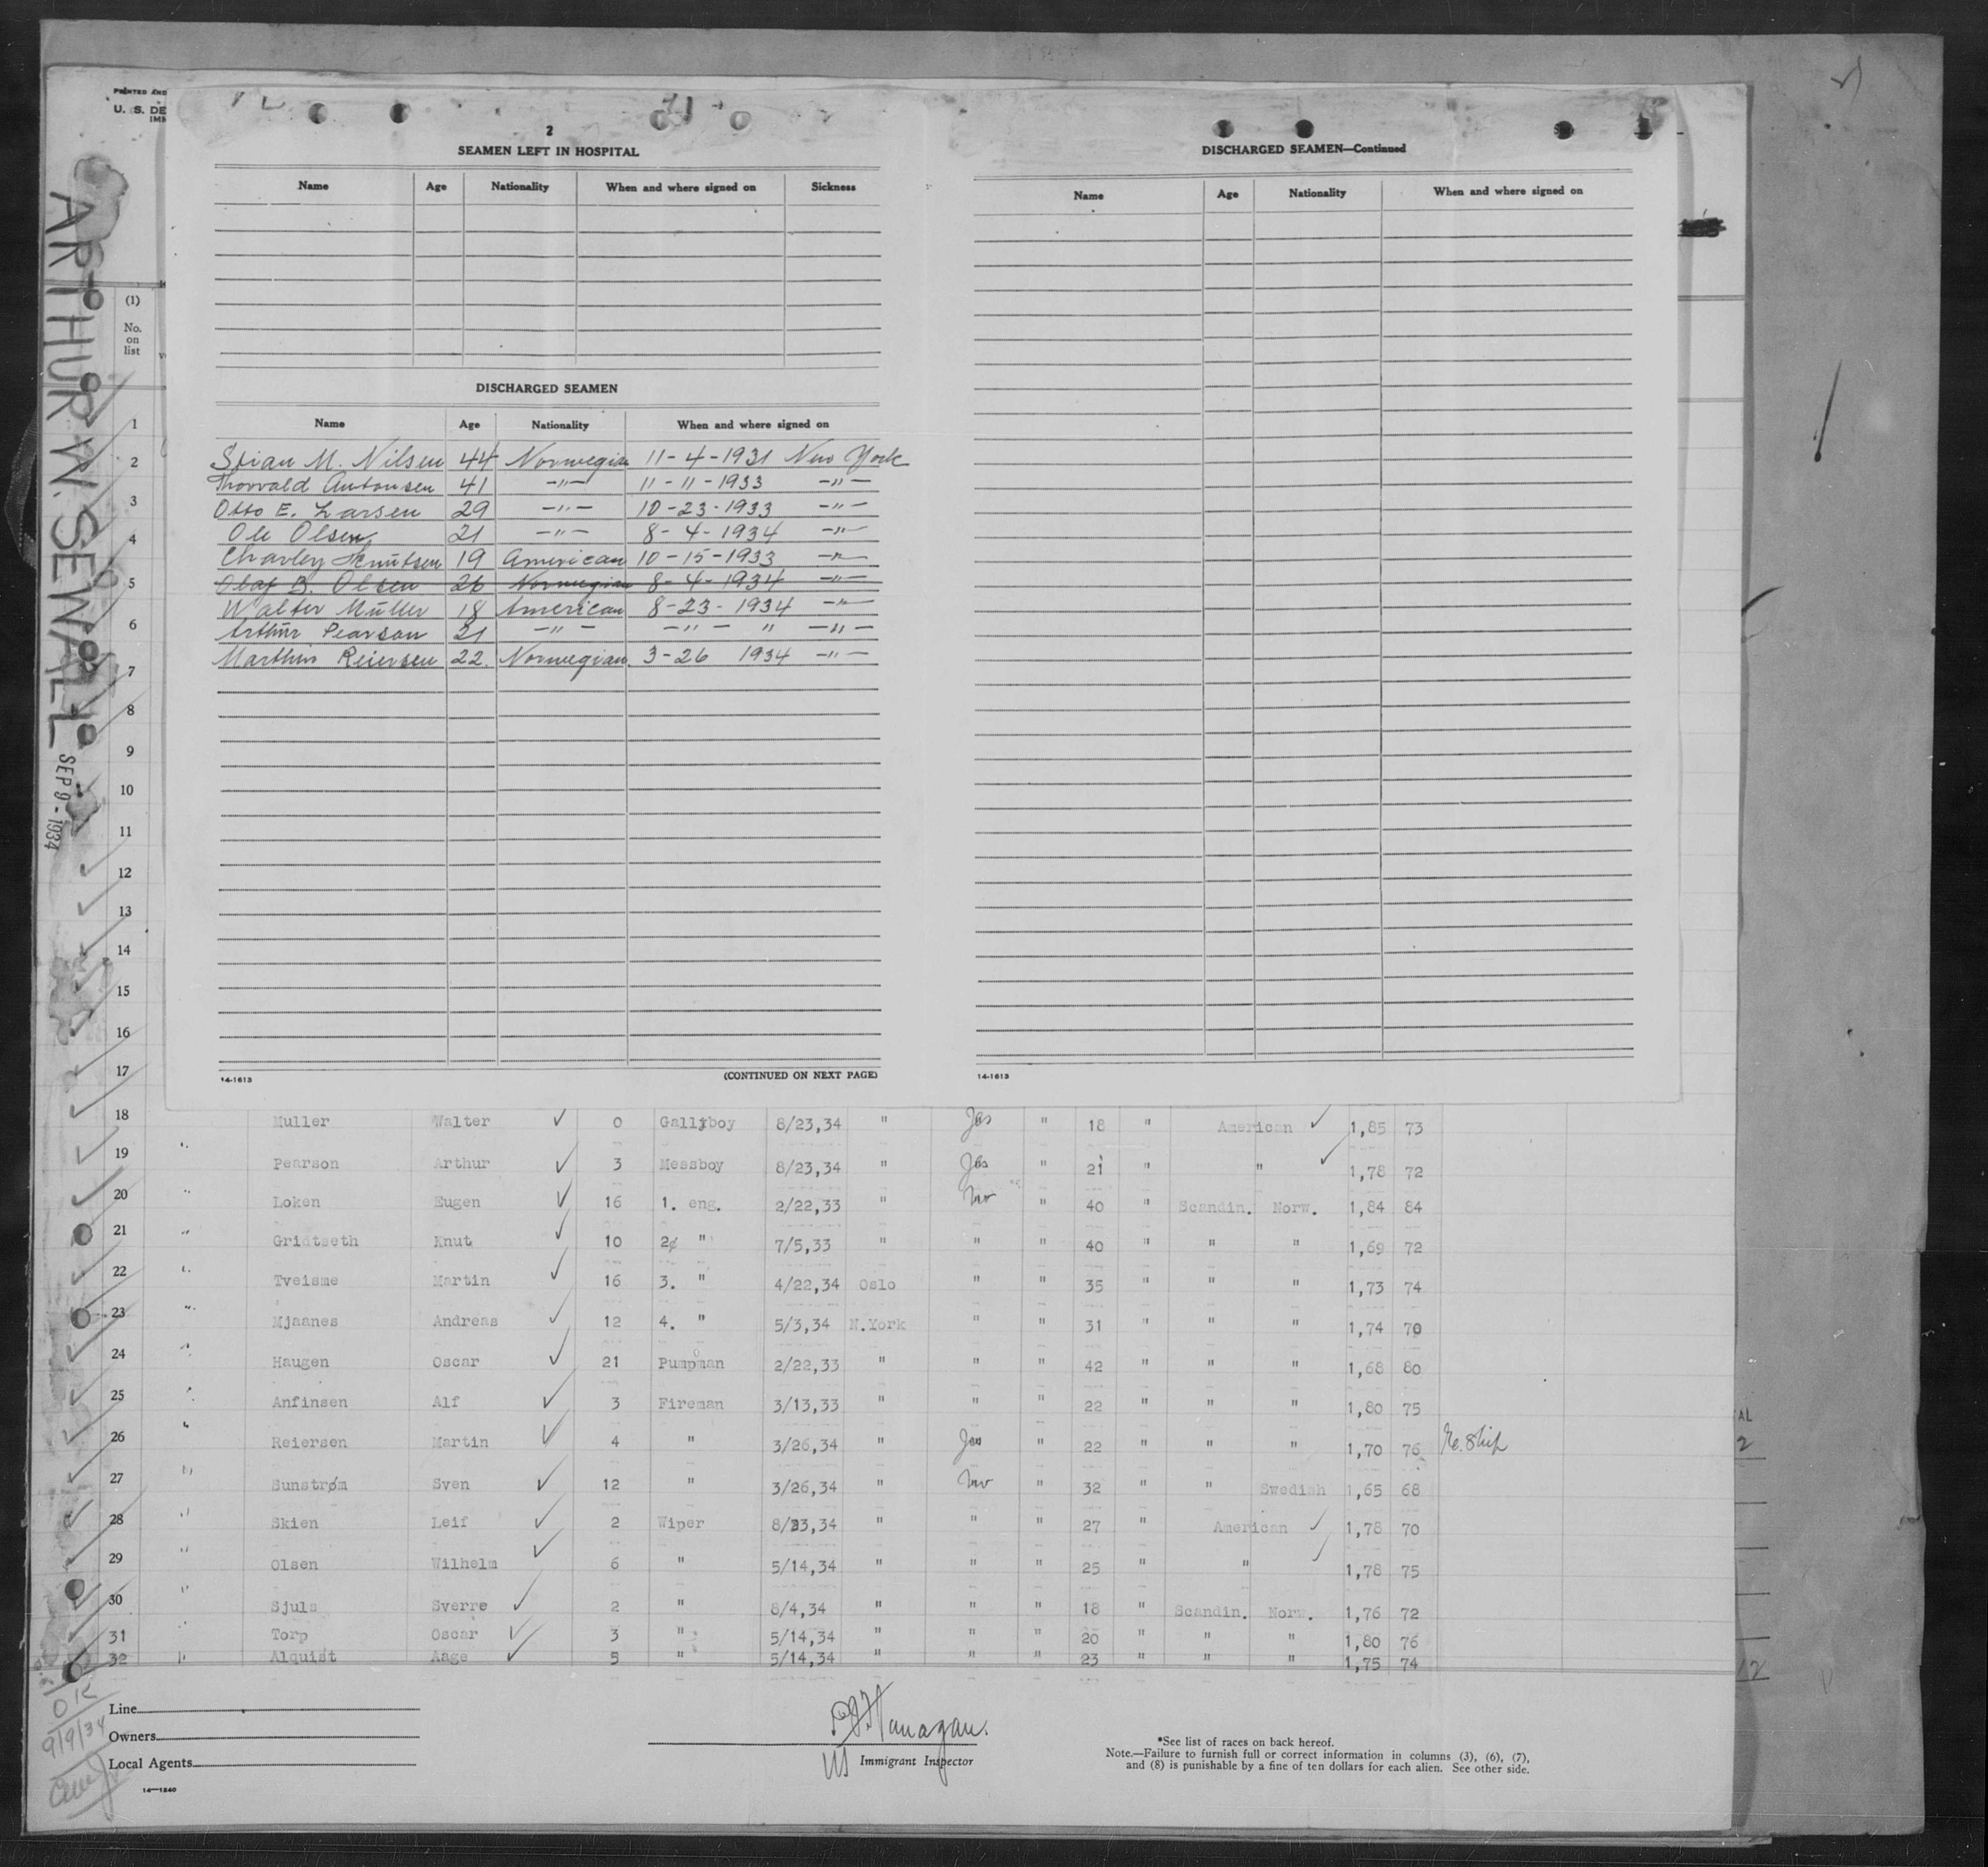 PRINTED AND
U. S. DE
IMM
ARTHUR W. SEWALL
SEP 9 - 1934
(1)
No.
on
list
1
2
3
4
5
6
7
8
9
10
11
12
13
14
15
16
17
2
SEAMEN LEFT IN HOSPITAL
Name Age Nationality When and where signed on Sickness
DISCHARGED SEAMEN
Name Age Nationality When and where signed on
Stian M. Nilsen 44 Norwegian 11-4-1931 New York
Thorvald Antonsen 41 -"- 11-11-1933 -"-
Otto E. Larsen 29 -"- 10-23-1933 -"-
Ole Olsen 21 -"- 8-4-1934 -"-
Charley Knutsen 19 American 10-15-1933 -"-
Olaf B. Olsen 26 Norwegian 8-4-1934 -"-
Walter Müller 18 American 8-23-1934 -"-
Arthur Pearson 21 -"- -"- " -"-
Marthin Reiersen 22. Norwegian. 3-26 1934 -"-
14-1613 (CONTINUED ON NEXT PAGE)
DISCHARGED SEAMEN—Continued
Name Age Nationality When and where signed on
14-1613
18 Muller Walter ✓ 0 Gallyboy 8/23,34 " Yes " 18 " American ✓ 1,85 73
19 " Pearson Arthur ✓ 3 Messboy 8/23,34 " Yes " 21 " " ✓ 1,78 72
20 " Loken Eugen ✓ 16 1. eng. 2/22,33 " No " 40 " Scandin. Norw. 1,84 84
21 " Gridtseth Knut ✓ 10 2. " 7/5,33 " " " 40 " " " 1,69 72
22 " Tveisme Martin ✓ 16 3. " 4/22,34 Oslo " " 35 " " " 1,73 74
23 " Mjaanes Andreas ✓ 12 4. " 5/3,34 N.York " " 31 " " " 1,74 70
24 " Haugen Oscar ✓ 21 Pumpman 2/22,33 " " " 42 " " " 1,68 80
25 " Anfinsen Alf ✓ 3 Fireman 3/13,33 " " " 22 " " " 1,80 75
26 " Reiersen Martin ✓ 4 " 3/26,34 " Yes " 22 " " " 1,70 76 Re. Ship
27 " Sunstrøm Sven ✓ 12 " 3/26,34 " No " 32 " " Swedish 1,65 68
28 " Skien Leif ✓ 2 Wiper 8/23,34 " " " 27 " American ✓ 1,78 70
29 " Olsen Wilhelm ✓ 6 " 5/14,34 " " " 25 " " ✓ 1,78 75
30 " Sjuls Sverre ✓ 2 " 8/4,34 " " " 18 " Scandin. Norw. 1,76 72
31 Torp Oscar ✓ 3 " 5/14,34 " " " 20 " " " 1,80 76
32 " Alquist Aage ✓ 5 " 5/14,34 " " " 23 " " " 1,75 74
OK
9/9/34
Line
Owners
Local Agents
14—1240
Flanagan.
US Immigrant Inspector
*See list of races on back hereof.
Note.—Failure to furnish full or correct information in columns (3), (6), (7),
and (8) is punishable by a fine of ten dollars for each alien. See other side.